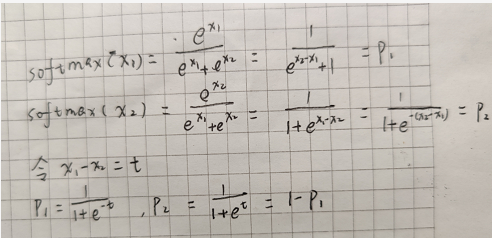 softmax(x₁) = e^{x₁} / (e^{x₁} + e^{x₂}) = 1 / (e^{x₂-x₁} + 1) = P₁
softmax(x₂) = e^{x₂} / (e^{x₁} + e^{x₂}) = 1 / (1 + e^{x₁-x₂}) = 1 / (1 + e^{-(x₂-x₁)}) = P₂
令 x₁-x₂ = t
P₁ = 1 / (1 + e^{-t}) , P₂ = 1 / (1 + e^{t}) = 1 - P₁